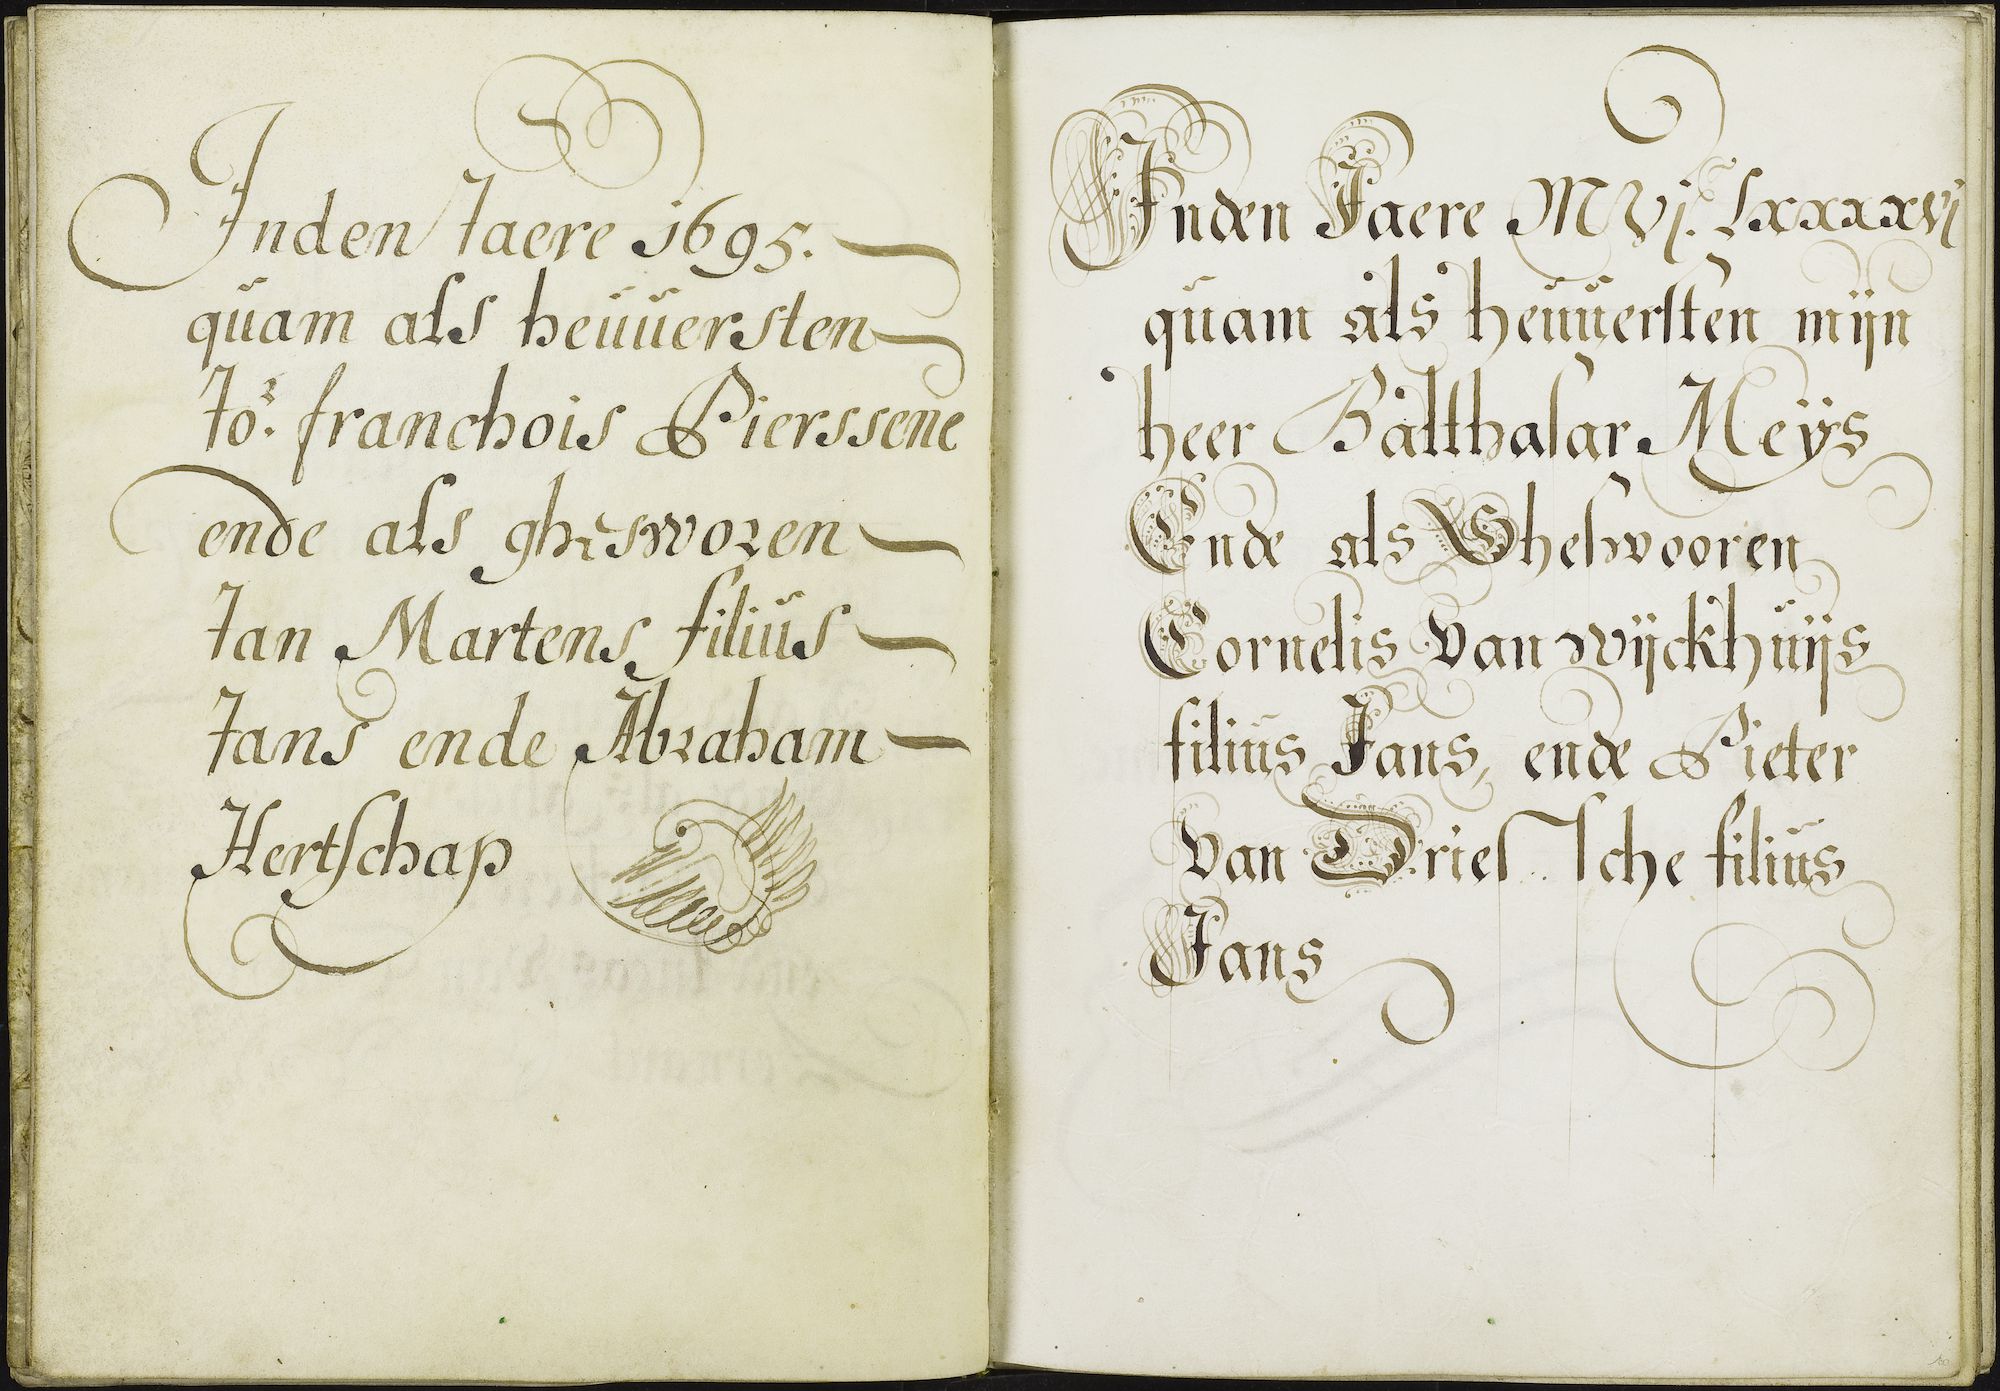 Inden Jaere 1695.
quam als heuuersten
Jor. franchois Pierssene
ende als ghesworen
Jan Martens filius
Jans ende Abraham
Hertschap
Inden Jaere MVjC Lxxxxvj
quam als heuuersten mijn
heer Balthasar Meijs
Ende als Gheswooren
Cornelis van wijckhuijs
filius Jans, ende Pieter
van Dries..sche filius
Jans